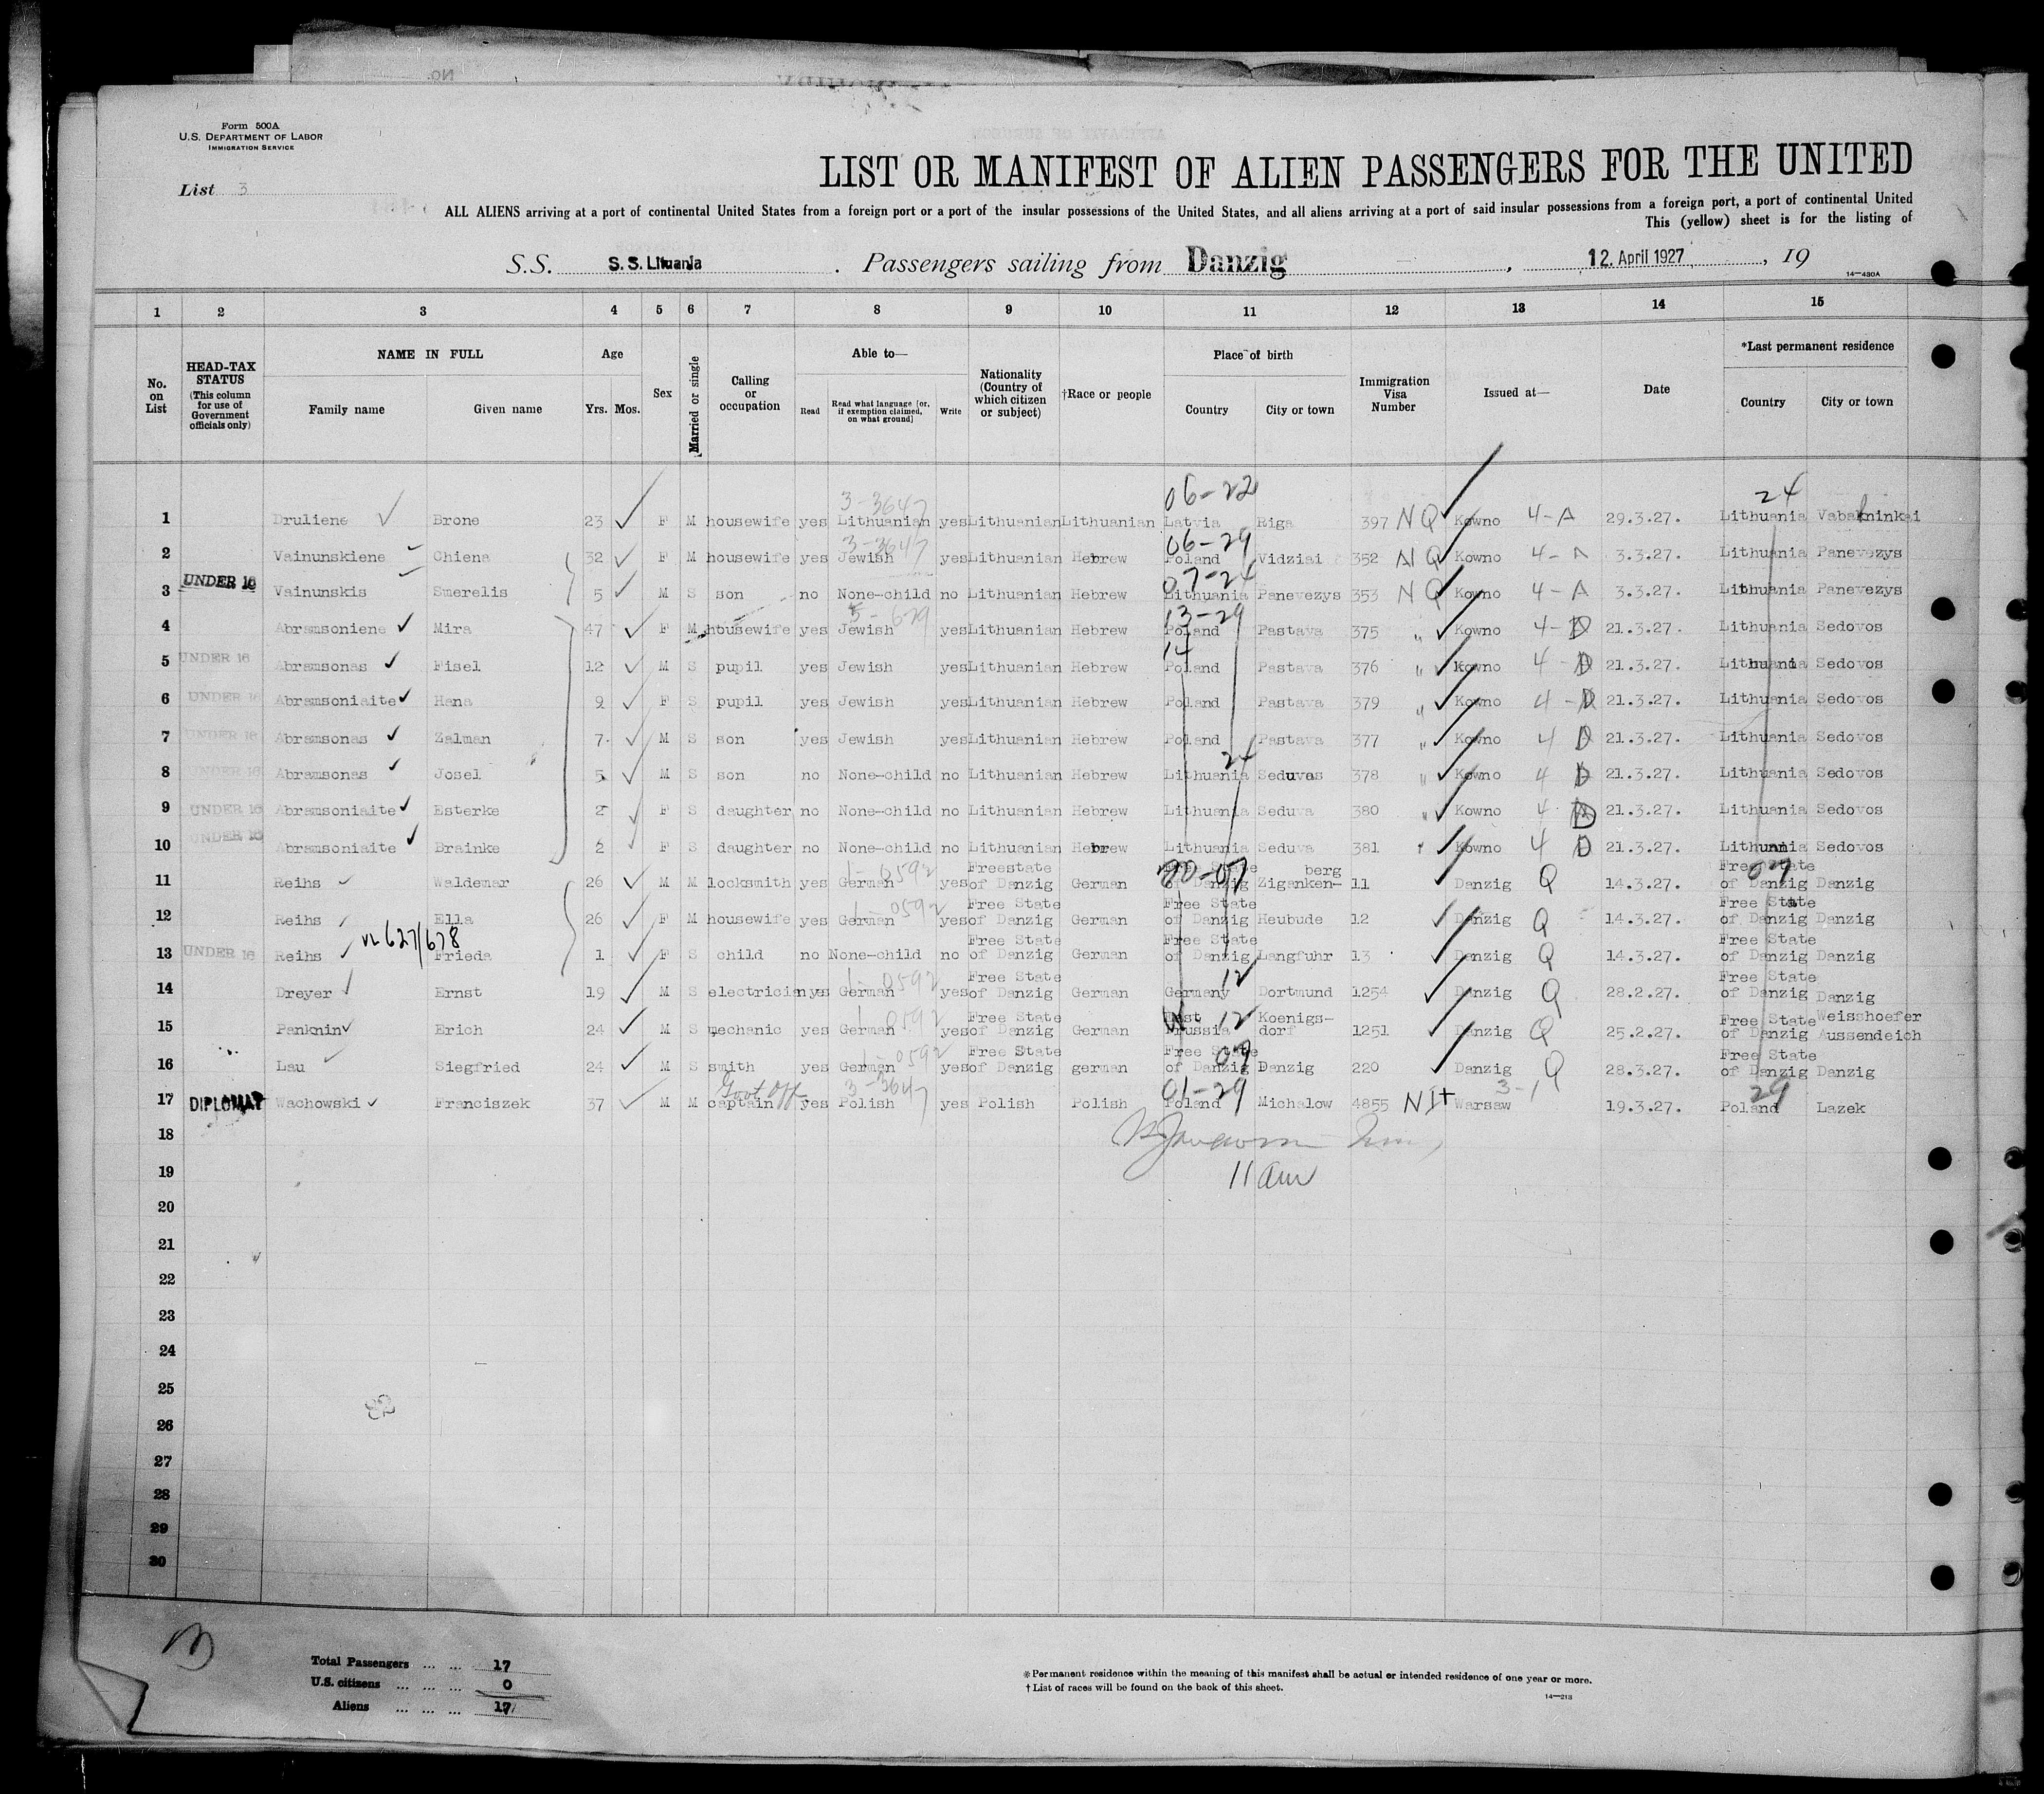 Form 500A
U.S. DEPARTMENT OF LABOR
IMMIGRATION SERVICE
List 3
LIST OR MANIFEST OF ALIEN PASSENGERS FOR THE UNITED
ALL ALIENS arriving at a port of continental United States from a foreign port or a port of the insular possessions of the United States, and all aliens arriving at a port of said insular possessions from a foreign port, a port of continental United
This (yellow) sheet is for the listing of
S.S. S.S. Lituania . Passengers sailing from Danzig , 12. April 1927 , 19
14—430A
1 2 3 4 5 6 7 8 9 10 11 12 13 14 15
No. on List
HEAD-TAX STATUS (This column for use of Government officials only)
NAME IN FULL
Family name Given name
Age
Yrs. Mos.
Sex
Married or single
Calling or occupation
Able to—
Read Read what language [or, if exemption claimed, on what ground] Write
Nationality (Country of which citizen or subject)
†Race or people
Place of birth
Country City or town
Immigration Visa Number
Issued at—
Date
*Last permanent residence
Country City or town
3-3647 06-22 24
1 Druliene Brone 23 F M housewife yes Lithuanian yes Lithuanian Lithuanian Latvia Riga 397 NQ Kowno 4-A 29.3.27. Lithuania Vabalninkai
3-3647 06-29
2 Vainunskiene Chiena 32 F M housewife yes Jewish yes Lithuanian Hebrew Poland Vidziai 352 NQ Kowno 4-A 3.3.27. Lithuania Panevezys
UNDER 16 07-24
3 Vainunskis Smerelis 5 M S son no None-child no Lithuanian Hebrew Lithuania Panevezys 353 NQ Kowno 4-A 3.3.27. Lithuania Panevezys
5-629 13-29
4 Abramsoniene Mira 47 F M housewife yes Jewish yes Lithuanian Hebrew Poland Pastava 375 " Kowno 4-D 21.3.27. Lithuania Sedovos
14
5 UNDER 16 Abramsonas Fisel 12 M S pupil yes Jewish yes Lithuanian Hebrew Poland Pastava 376 " Kowno 4-D 21.3.27. Lithuania Sedovos
6 UNDER 16 Abramsoniaite Hana 9 F S pupil yes Jewish yes Lithuanian Hebrew Poland Pastava 379 " Kowno 4-D 21.3.27. Lithuania Sedovos
7 UNDER 16 Abramsonas Zalman 7 M S son yes Jewish yes Lithuanian Hebrew Poland Pastava 377 " Kowno 4 D 21.3.27. Lithuania Sedovos
24
8 UNDER 16 Abramsonas Josel 5 M S son no None-child no Lithuanian Hebrew Lithuania Seduvas 378 " Kowno 4 D 21.3.27. Lithuania Sedovos
9 UNDER 16 Abramsoniaite Esterke 2 F S daughter no None-child no Lithuanian Hebrew Lithuania Seduva 380 " Kowno 4 D 21.3.27. Lithuania Sedovos
10 UNDER 16 Abramsoniaite Brainke 2 F S daughter no None-child no Lithuanian Hebrew Lithuania Seduva 381 " Kowno 4 D 21.3.27. Lithuania Sedovos
1-0592 Freestate 20-07 State berg Free State 07
11 Reihs Waldemar 26 M M locksmith yes German yes of Danzig German of Danzig Ziganken- 11 Danzig Q 14.3.27. of Danzig Danzig
1-0592 Free State Free State Free State
12 Reihs Ella 26 F M housewife yes German yes of Danzig German of Danzig Heubude 12 Danzig Q 14.3.27. of Danzig Danzig
627/678 Free State Free State Free State
13 UNDER 16 Reihs Frieda 1 F S child no None-child no of Danzig German of Danzig Langfuhr 13 Danzig Q 14.3.27. of Danzig Danzig
1-0592 Free State 12 Free State
14 Dreyer Ernst 19 M S electrician yes German yes of Danzig German Germany Dortmund 1254 Danzig Q 28.2.27. of Danzig Danzig
1 0592 Free State East 12 Koenigs- Free State Weisshoefer
15 Panknin Erich 24 M S mechanic yes German yes of Danzig German Prussia dorf 1251 Danzig Q 25.2.27. of Danzig Aussendeich
1-0592 Free State Free State 07 Free State
16 Lau Siegfried 24 M S smith yes German yes of Danzig german of Danzig Danzig 220 Danzig Q 28.3.27. of Danzig Danzig
Govt Off 3-3647 01-29 3-1 29
17 DIPLOMAT Wachowski Franciszek 37 M M captain yes Polish yes Polish Polish Poland Michalow 4855 Warsaw 19.3.27. Poland Lazek
18
19 11 am
20
21
22
23
24
25
26
27
28
29
30
Total Passengers ... ... 17
U.S. citizens ... ... ... 0
Aliens ... ... ... 17
*Permanent residence within the meaning of this manifest shall be actual or intended residence of one year or more.
†List of races will be found on the back of this sheet.
14—213